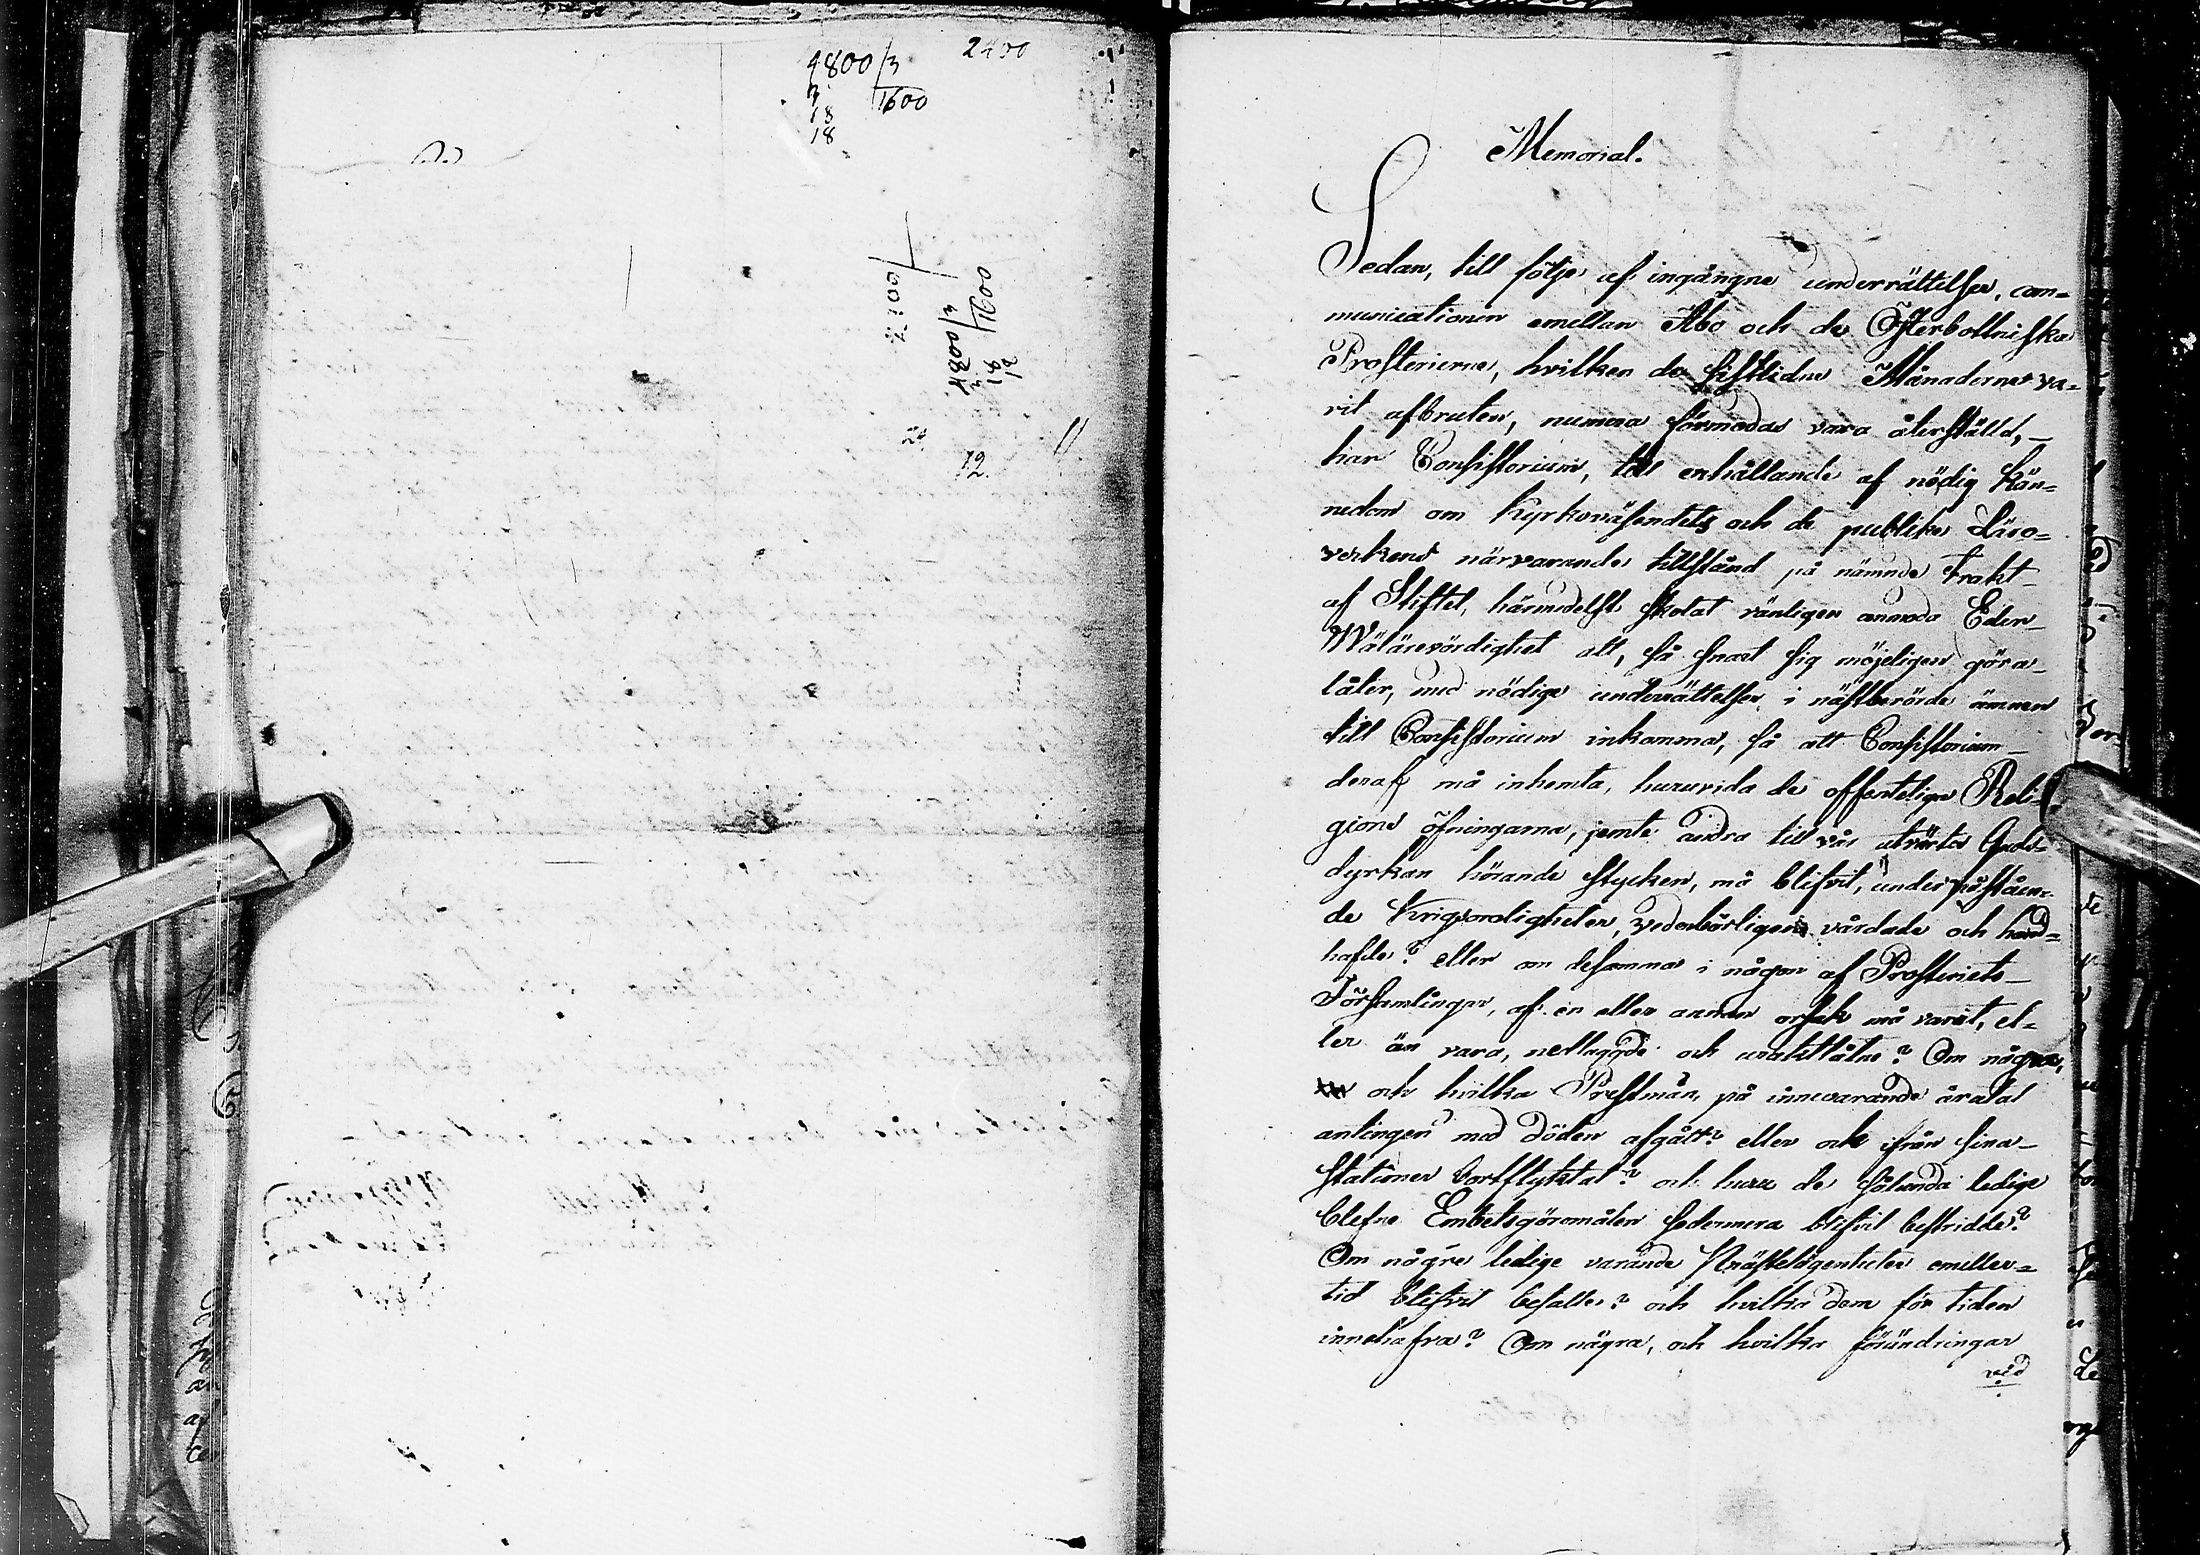 4800/3 2400
3 1600
18
18
2400
4800/3
3 1600
18
12
24
12
11
Memorial.
Sedan, till följe af ingångne underrättelser, com=
munication emellan Åbo och de Österbottniska
Prosterierne, hvilken de sistledne Månaderne va=
rit afbruten, numera förmodas vara återställd, –
har Consistorium, till erhållande af nödig kän=
nedom om Kyrkoväsendets och de publike Läro=
verkens närvarande tillstånd på nämnde trakt
af Stiftet, härmedelst skolat vänligen anmoda Eder
Wälärevördighet att, så snart sig möjeligen göra
låter, med nödige underrättelser i nästberörde ämnen
till Consistorium inkomma, så att Consistorium
deraf må inhemta, huruvida de offentelige Reli
gions öfningarna, jemte andra till vår utvärtes Guds=
dyrkan hörande stycken, må blifvit, under påståen=
de Krigsoroligheter, vederbörligen vårdade och hand=
hafde? eller om desamma i någon af Prosteriets
Församlingar, af en eller annan orsak må varit, el=
ler än vara, nedlaggde och uraktlåtne? Om några,
och hvilka Prestmän, på innevarande åratal
antingen med döden afgått? eller ock ifrån sina
stationer bortflyktat? och huru de sålunda ledige
blefne Embetsgöromålen sedermera blifvit bestridde?
Om någre ledige varande Prästelägenheter emiller=
tid blifvit besatte? och hvilka dem för tiden
innehafva? Om några, och hvilka förändringar
vid